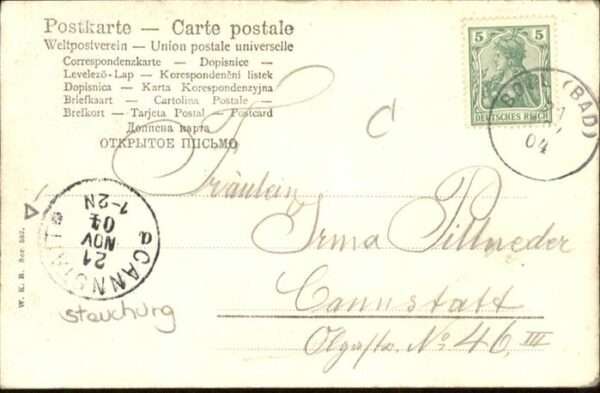 Postkarte — Carte postale
Weltpostverein — Union postale universelle
Correspondenzkarte — Dopisnice —
Levelező-Lap — Korespondenční listek
Dopisnica — Karta Korespondencyjna
Briefkaart — Cartolina Postale —
Brefkort — Tarjeta Postal — Postcard
Допнена карта
ОТКРЫТОЕ ПИСЬМО
5 5
DEUTSCHES REICH
(BAD)
04
C
Fräulein
Irma Pillneder
Cannstatt
Olgastr. No 46, III
CANNST
21
NOV
04
1-2N
stauchung
W. K. B. Ser.